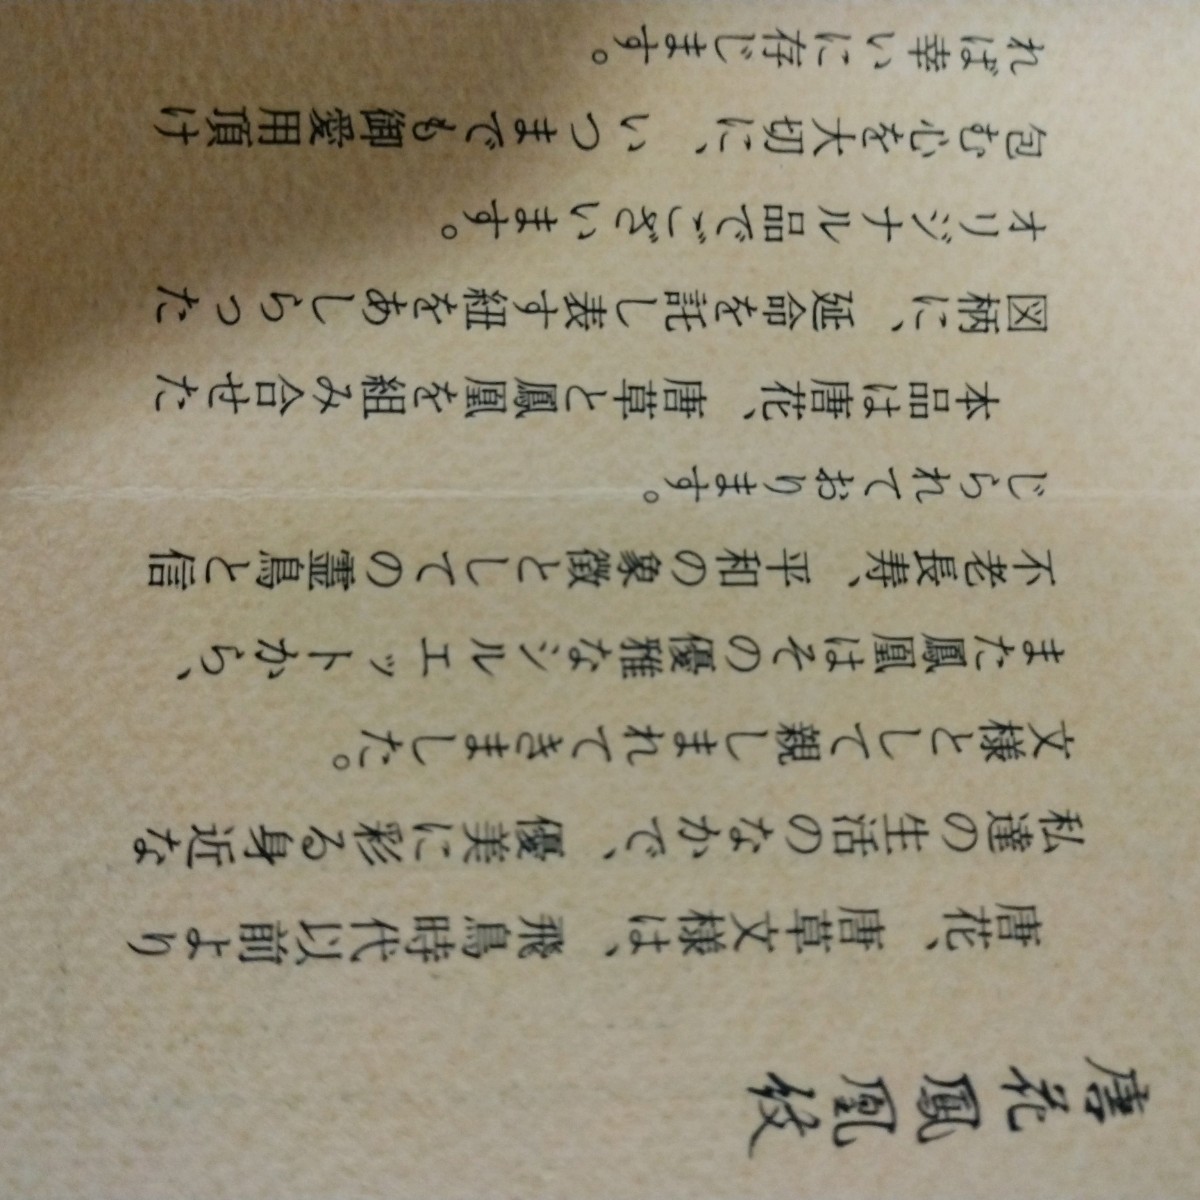 唐花鳳凰紋
唐花、唐草文様は、飛鳥時代以前より
私達の生活のなかで、優美に彩る身近な
文様として親しまれてきました。
また鳳凰はその優雅なシルエットから、
不老長寿、平和の象徴としての霊鳥と信
じられております。
本品は唐花、唐草と鳳凰を組み合せた
図柄に、延命を託し表す紐をあしらった
オリジナル品でございます。
包む心を大切に、いつまでも御愛用頂け
れば幸いに存じます。